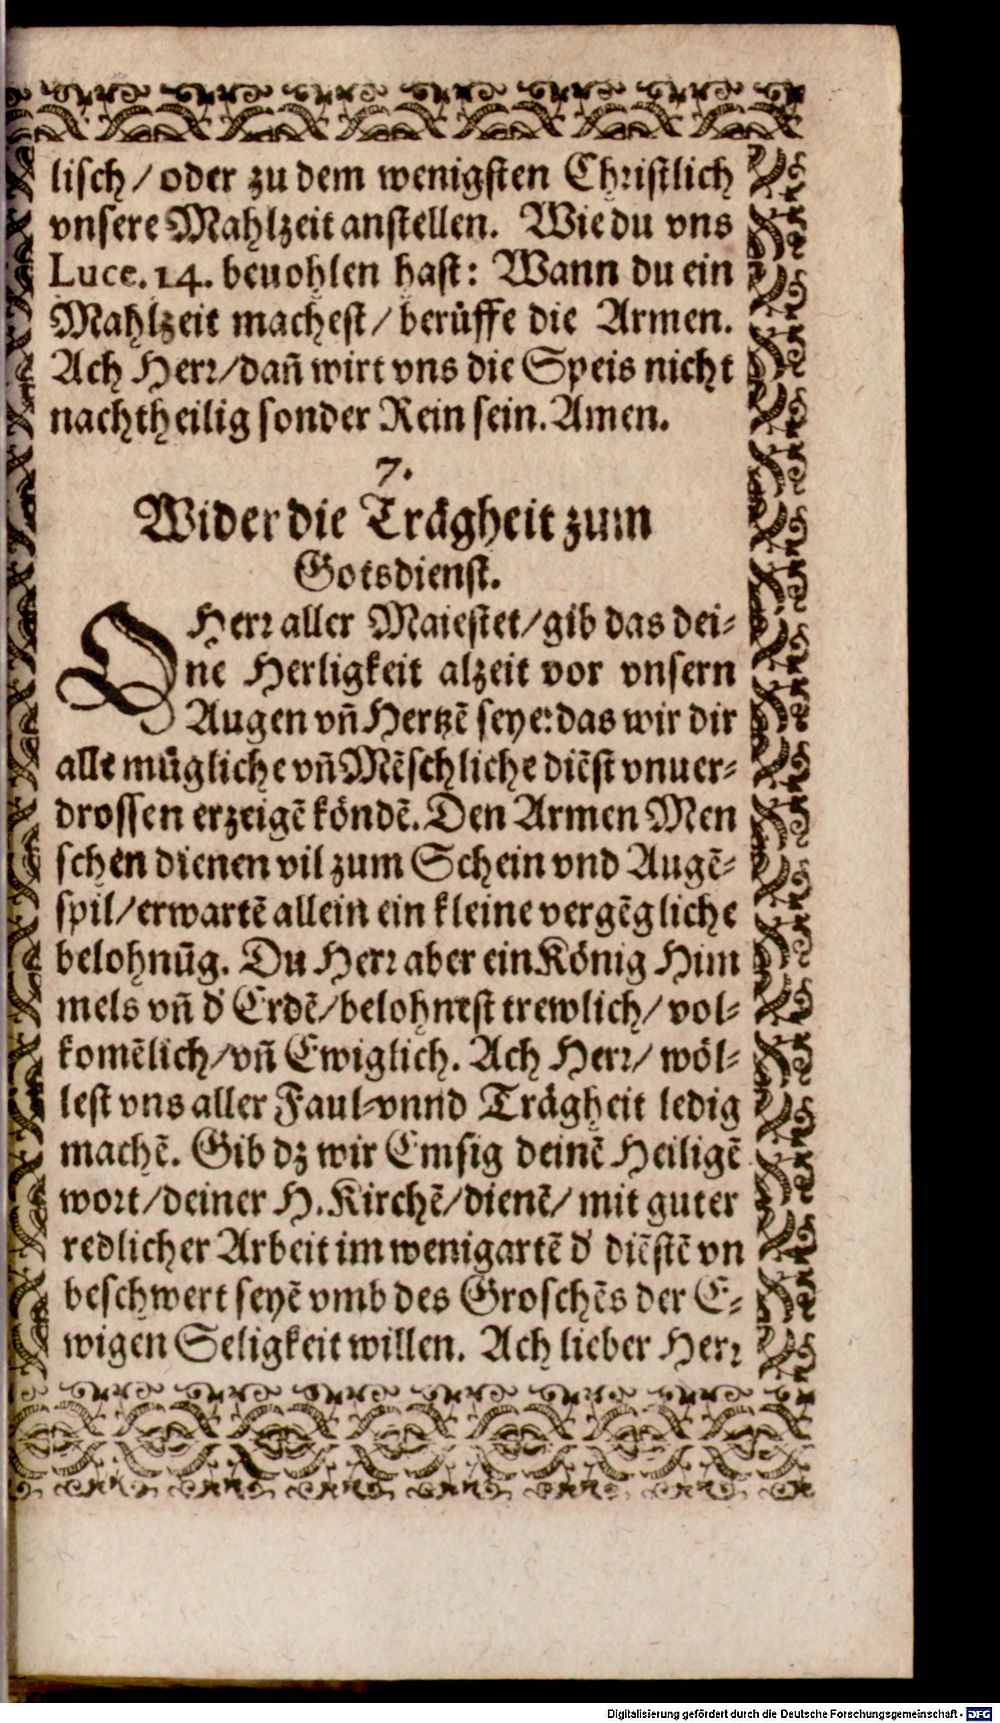 lisch / oder zu dem wenigsten Christlich
vnsere Mahlzeit anstellen. Wie du vns
Luce. 14. beuohlen hast: Wann du ein
Mahlzeit machest / berüffe die Armen.
Ach Herr / dañ wirt vns die Speis nicht
nachtheilig sonder Rein sein. Amen.
7.
Wider die Trägheit zum
Gotsdienst.
O Herr aller Maiestet / gib das dei-
ne Herligkeit alzeit vor vnsern
Augen vñ Hertzē seye: das wir dir
alle mügliche vñ Mēschliche diēst vnuer-
drossen erzeigē köndē. Den Armen Men
schen dienen vil zum Schein vnd Augē-
spil / erwartē allein ein kleine vergēgliche
belohnūg. Du Herr aber ein König Him
mels vñ d' Erdē / belohnest trewlich / vol-
komēlich / vñ Ewiglich. Ach Herr / wöl-
lest vns aller Faul- vnnd Trägheit ledig
machē. Gib dz wir Emsig deinē Heiligē
wort / deiner H. Kirchē / dienē / mit guter
redlicher Arbeit im wenigartē d' diēstē vn
beschwert seyē vmb des Groschēs der E-
wigen Seligkeit willen. Ach lieber Herr
Digitalisierung gefördert durch die Deutsche Forschungsgemeinschaft - DFG